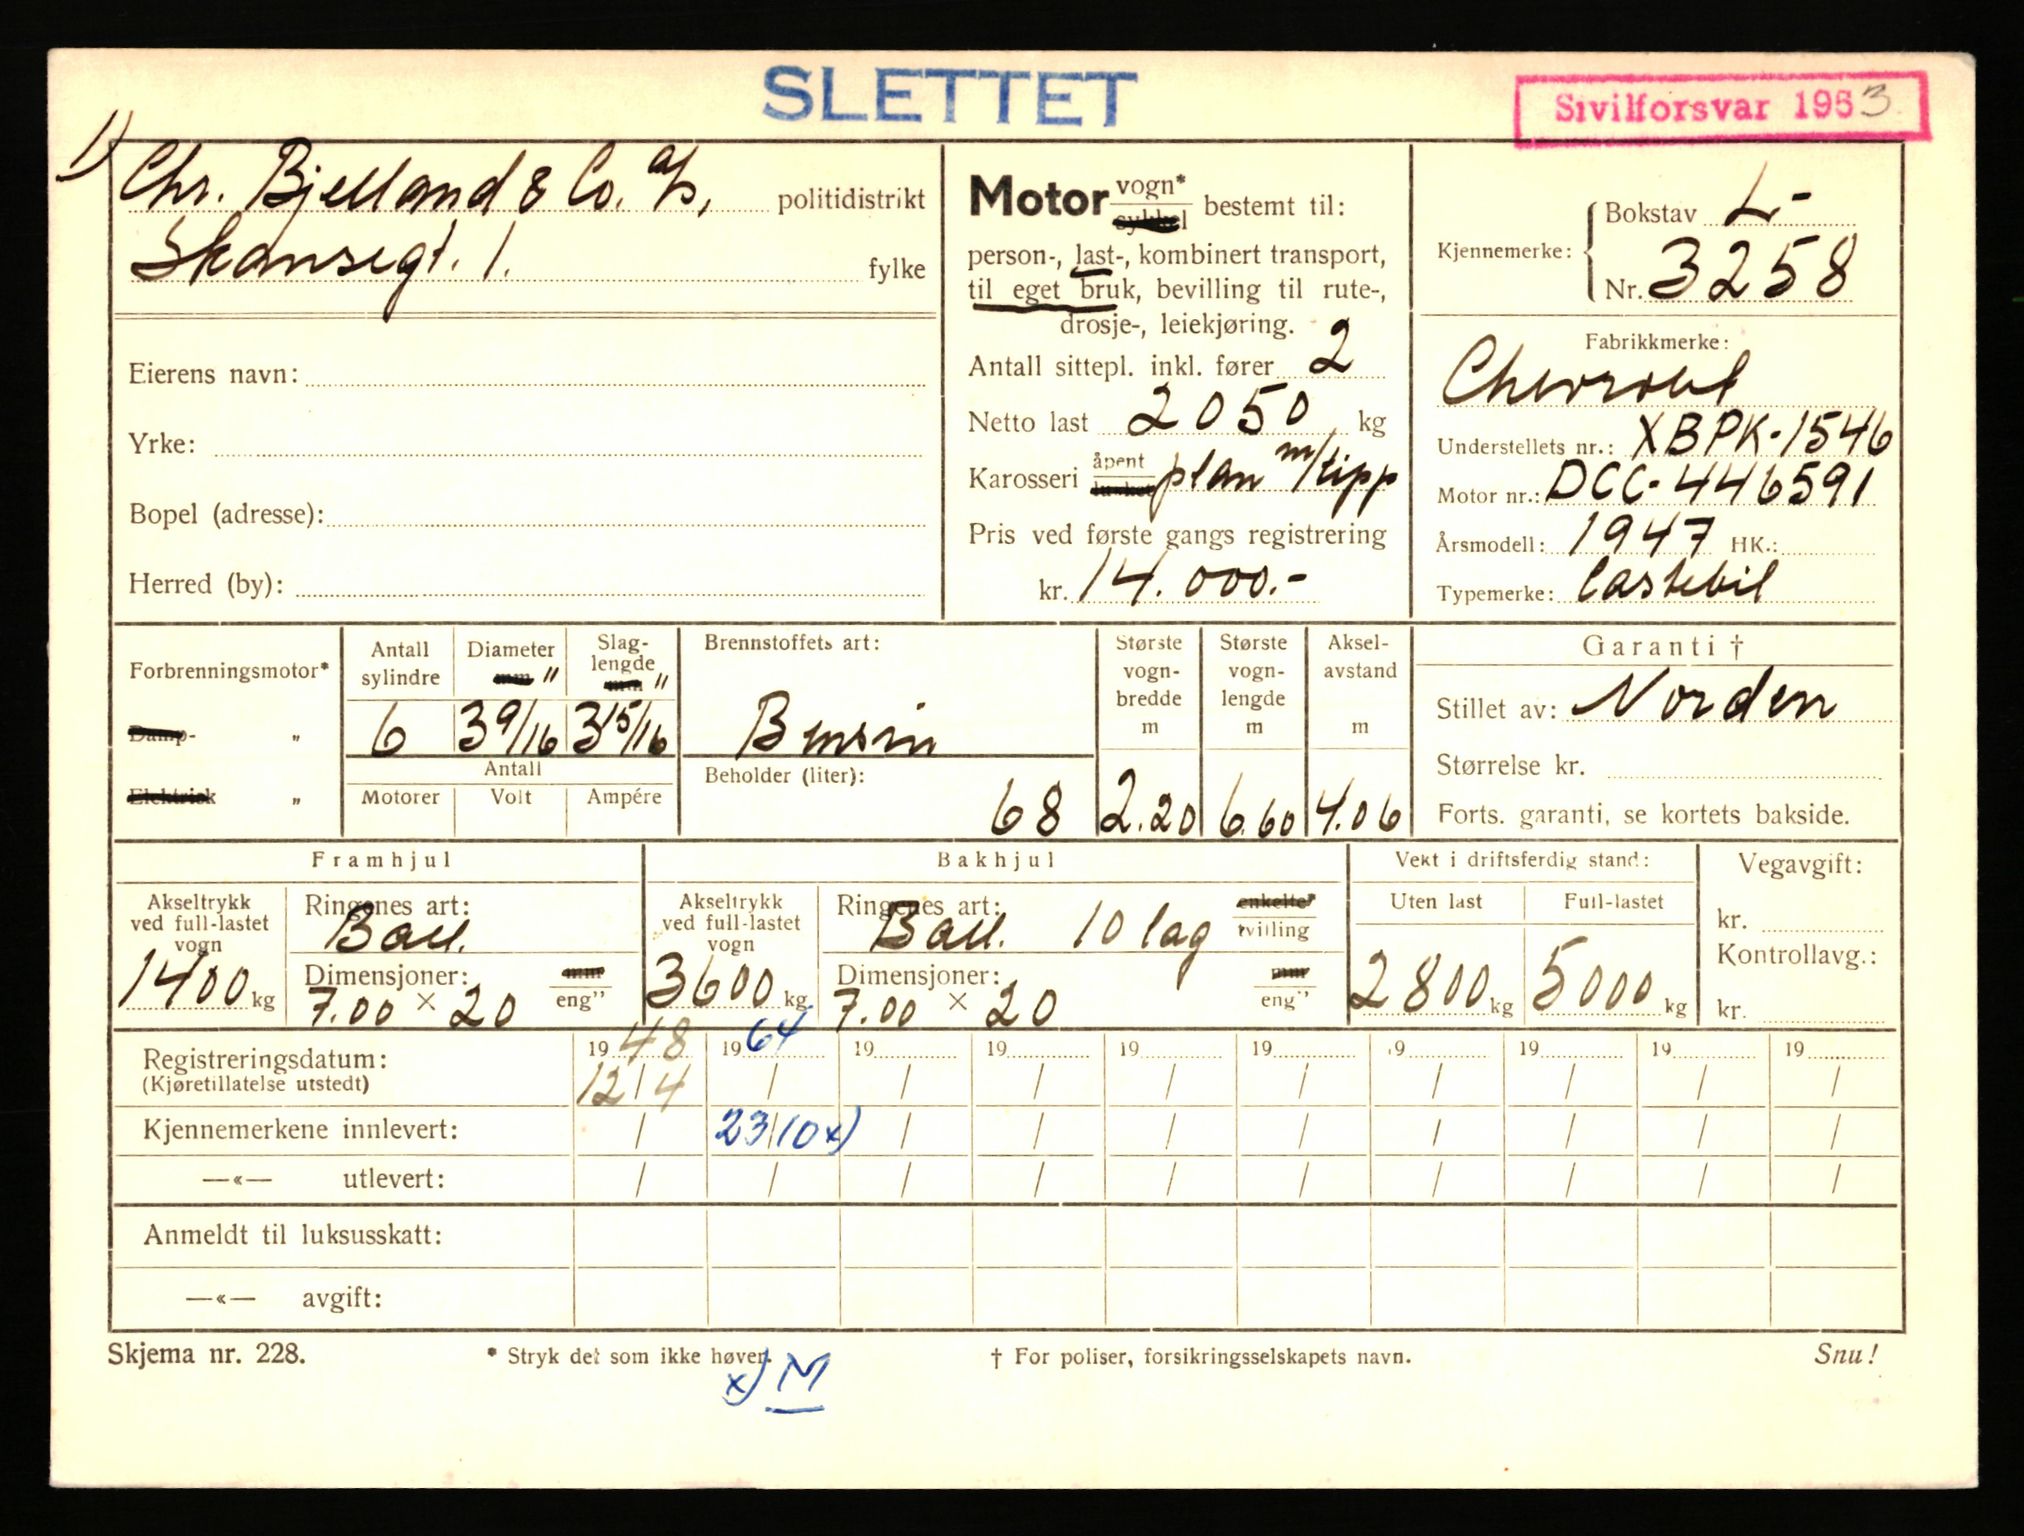 SLETTET
Sivilforsvar 1953
1)
Chr. Bjelland & Co. a/s, politidistrikt
Skansegt. 1. fylke
Eierens navn:
Yrke:
Bopel (adresse):
Herred (by):
Motor vogn* sykkel bestemt til:
person-, last-, kombinert transport,
til eget bruk, bevilling til rute-,
drosje-, leiekjøring.
Antall sittepl. inkl. fører 2
Netto last 2050 kg
Karosseri åpent lukket plan m/tipp
Pris ved første gangs registrering
kr. 14.000.-
Kjennemerke: Bokstav L-
Nr. 3258
Fabrikkmerke:
Chevrolet
Understellets nr.: XBPK-1546
Motor nr.: DCC-446591
Årsmodell: 1947 HK.:
Typemerke: Lastebil
Forbrenningsmotor*
Damp- "
Elektrisk "
Antall sylindre
6
Diameter mm "
3 9/16
Slag-lengde mm "
3 15/16
Antall
Motorer Volt Ampére
Brennstoffets art:
Bensin
Beholder (liter):
68
Største vogn-bredde m
2.20
Største vogn-lengde m
6.60
Aksel-avstand m
4.06
Garanti †
Stillet av: Norden
Størrelse kr.
Forts. garanti, se kortets bakside.
Framhjul
Akseltrykk ved full-lastet vogn
1400 kg
Ringenes art:
Ball.
Dimensjoner: mm eng"
7.00 × 20
Bakhjul
Akseltrykk ved full-lastet vogn
3600 kg
Ringenes art: enkelte* tvilling
Ball. 10 lag
Dimensjoner: mm eng"
7.00 × 20
Vekt i driftsferdig stand:
Uten last Full-lastet
2800 kg 5000 kg
Vegavgift:
kr.
Kontrollavg.:
kr.
Registreringsdatum: 19 48 19 64 19 19 19 19 19 19 19 19
(Kjøretillatelse utstedt) 12/4 / / / / / / / / /
Kjennemerkene innlevert: / 23/10 x) / / / / / / / /
—«— utlevert: / / / / / / / / / /
Anmeldt til luksusskatt:
—«— avgift:
Skjema nr. 228. * Stryk det som ikke høver. † For poliser, forsikringsselskapets navn. Snu!
x) M